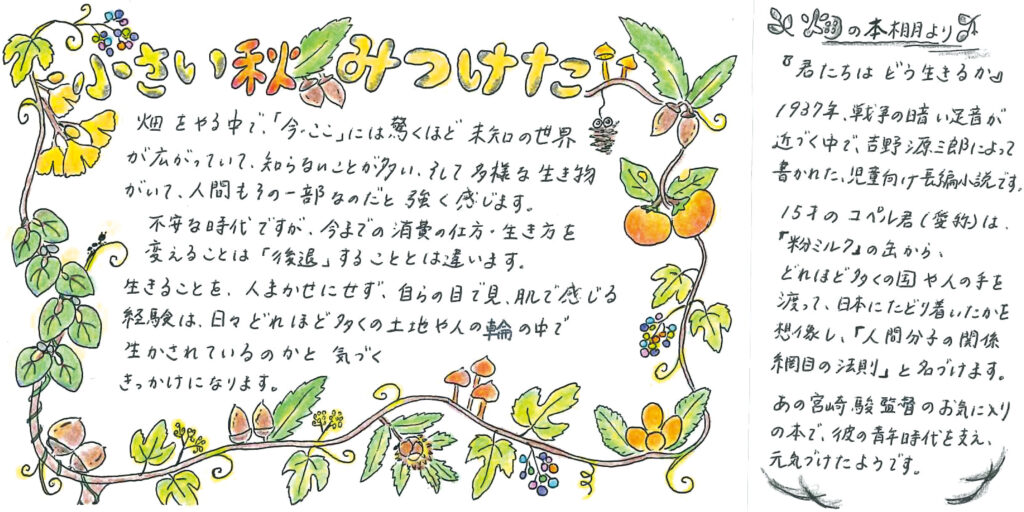 小さい秋みつけた
畑をやる中で、「今、ここ」には驚くほど未知の世界
が広がっていて、知らないことが多い、そして多様な生き物
がいて、人間もその一部なのだと強く感じます。
不安な時代ですが、今までの消費の仕方・生き方を
変えることは「後退」することとは違います。
生きることを、人まかせにせず、自らの目で見、肌で感じる
経験は、日々どれほど多くの土地や人の輪の中で
生かされているのかと気づく
きっかけになります。
畑の本棚より
『君たちはどう生きるか』
1937年、戦争の暗い足音が
近づく中で、吉野源三郎によって
書かれた、児童向け長編小説です。
15才のコペル君(愛称)は、
『粉ミルク』の缶から、
どれほど多くの国や人の手を
渡って、日本にたどり着いたかを
想像し、「人間分子の関係
網目の法則」と名づけます。
あの宮崎駿監督のお気に入り
の本で、彼の青年時代を支え、
元気づけたようです。